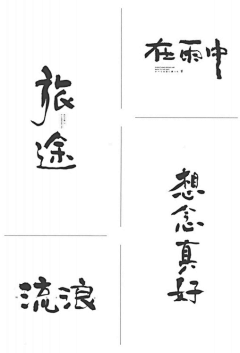 旅途
在雨中
想念真好
流浪